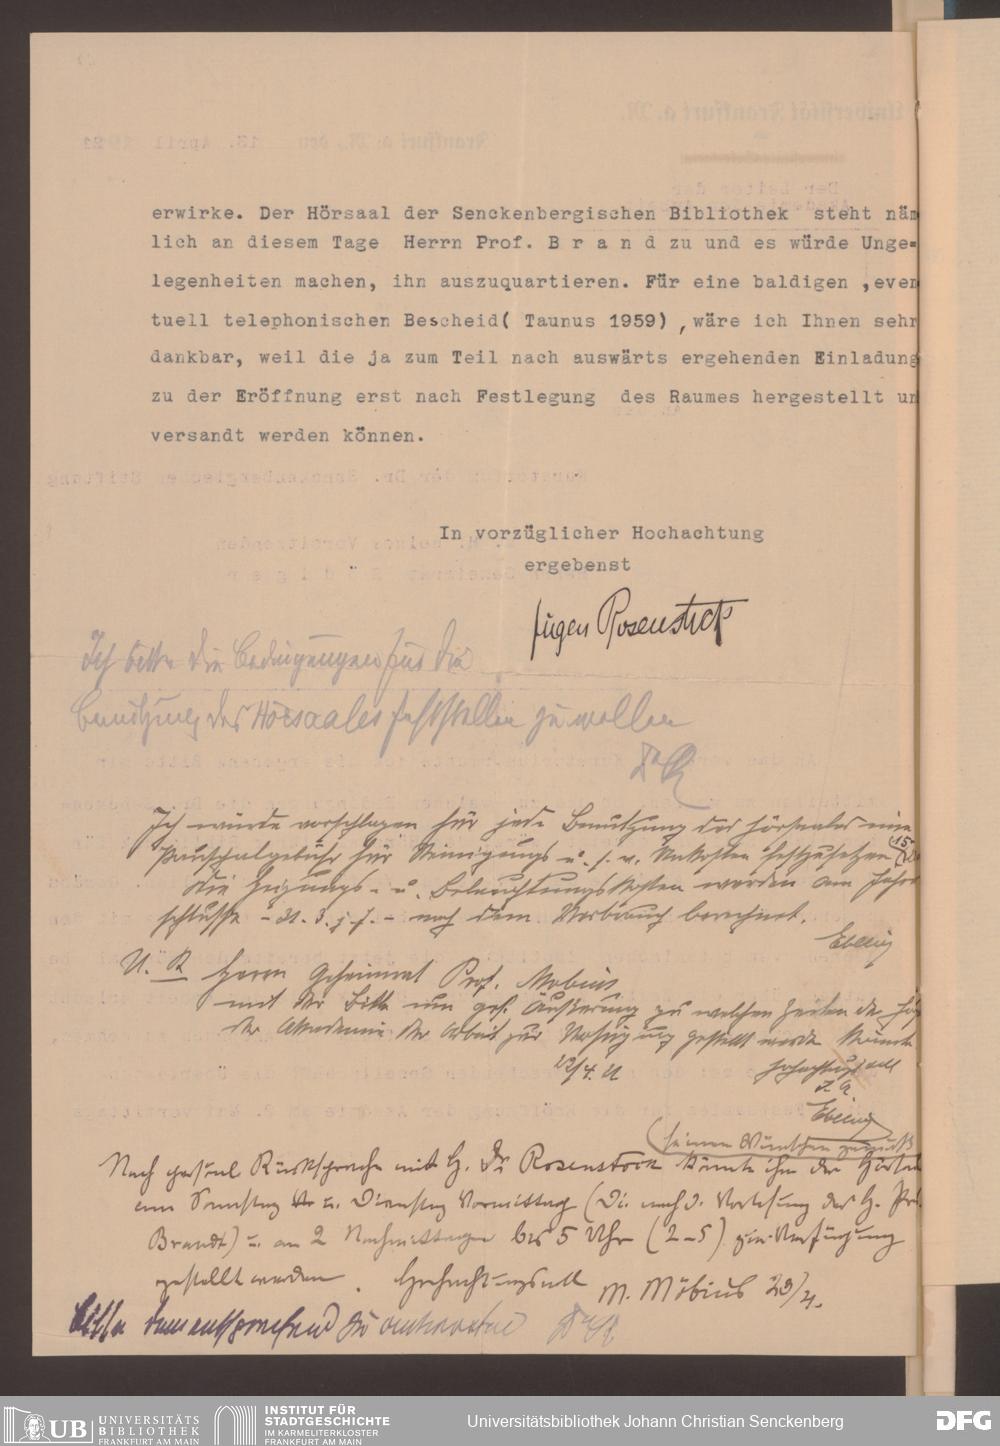 erwirke. Der Hörsaal der Senckenbergischen Bibliothek steht näm
lich an diesem Tage Herrn Prof. B r a n d zu und es würde Unge=
legenheiten machen, ihn auszuquartieren. Für eine baldigen ,even
tuell telephonischen Bescheid( Taunus 1959) ,wäre ich Ihnen sehr
dankbar, weil die ja zum Teil nach auswärts ergehenden Einladung
zu der Eröffnung erst nach Festlegung des Raumes hergestellt un
versandt werden können.
In vorzüglicher Hochachtung
ergebenst
Eugen Rosenstock
Ich bitte die Bedingungen für die
Benutzung des Hörsaales feststellen zu wollen
Ich würde vorschlagen für jede Benutzung des Hörsaales eine
Pauschalgebühr für Reinigungs u. s. w. Unkosten festzusetzen (15
Die Heizungs- u. Beleuchtungskosten werden am Jahres
schlusse - 31. 3. j. J. - nach dem Verbrauch berechnet.
Ebeling
U. R. Herrn Geheimrat Prof. Möbius
mit der Bitte um gef. Äußerung zu welchen Zeiten der Hörs
der Akademie der Arbeit zur Verfügung gestellt werden könnte
22/4. 21 Hochachtungsvoll
Ebeling
(seinen Wünschen gemäß
Nach persönl Rücksprache mit H. Dr Rosenstock könnte ihm der Hörsaal
am Samstag u. Dienstag Vormittag (Di. nach d. Vorlesung des H. Prof.
Brandt) u. an 2 Nachmittagen bis 5 Uhr (2-5) zur Verfügung
gestellt werden. Hochachtungsvoll M. Möbius 23/4.
Bitte dementsprechend zu antworten
UB UNIVERSITÄTS
BIBLIOTHEK
FRANKFURT AM MAIN
INSTITUT FÜR
STADTGESCHICHTE
IM KARMELITERKLOSTER
FRANKFURT AM MAIN
Universitätsbibliothek Johann Christian Senckenberg
DFG